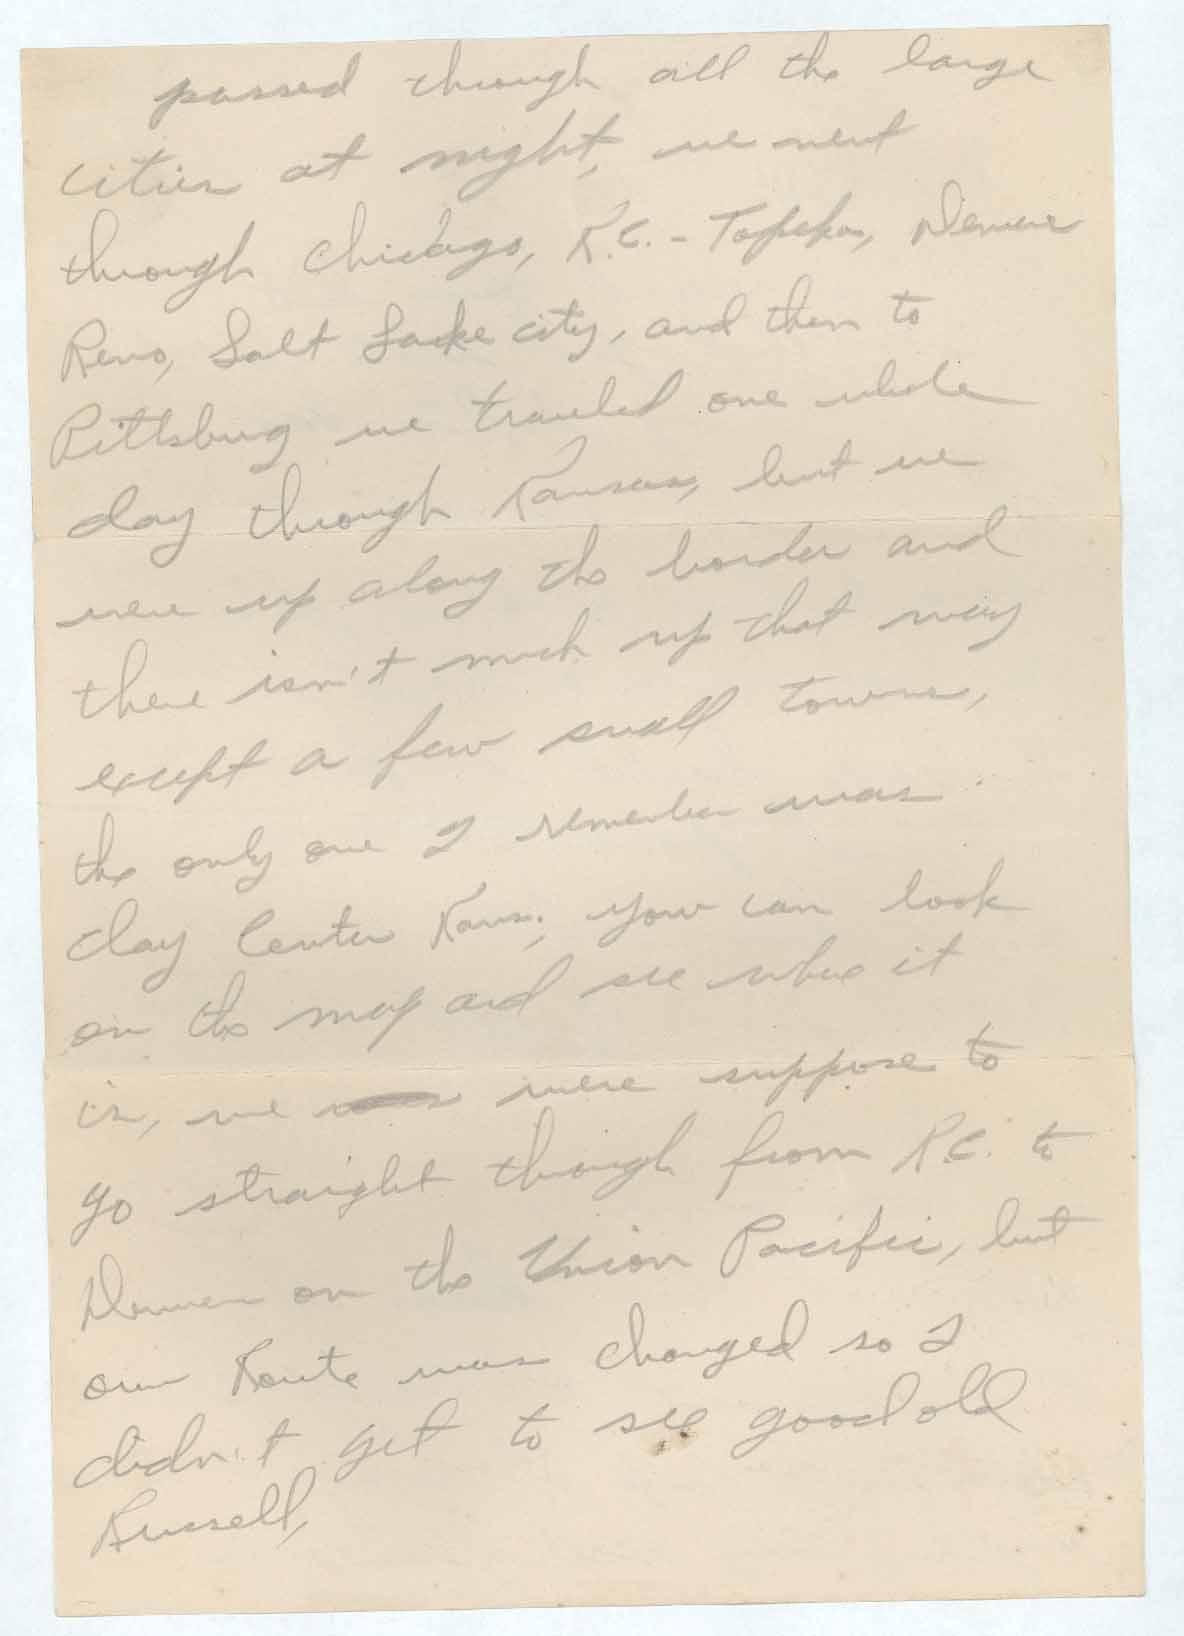 passed through all the large
cities at night, we went
through Chicago, K.C. - Topeka, Denver
Reno, Salt Lake city, and then to
Pittsburg we traveled one whole
day through Kansas, but we
were up along the border and
there isn't much up that way
except a few small towns,
the only one I remember was
Clay Center Kans; your can look
on the map and see where it
is, we were suppose to
go straight though from K.C. to
Denver on the Union Pacific, but
our Route was changed so I
didn't get to see good old
Russell,